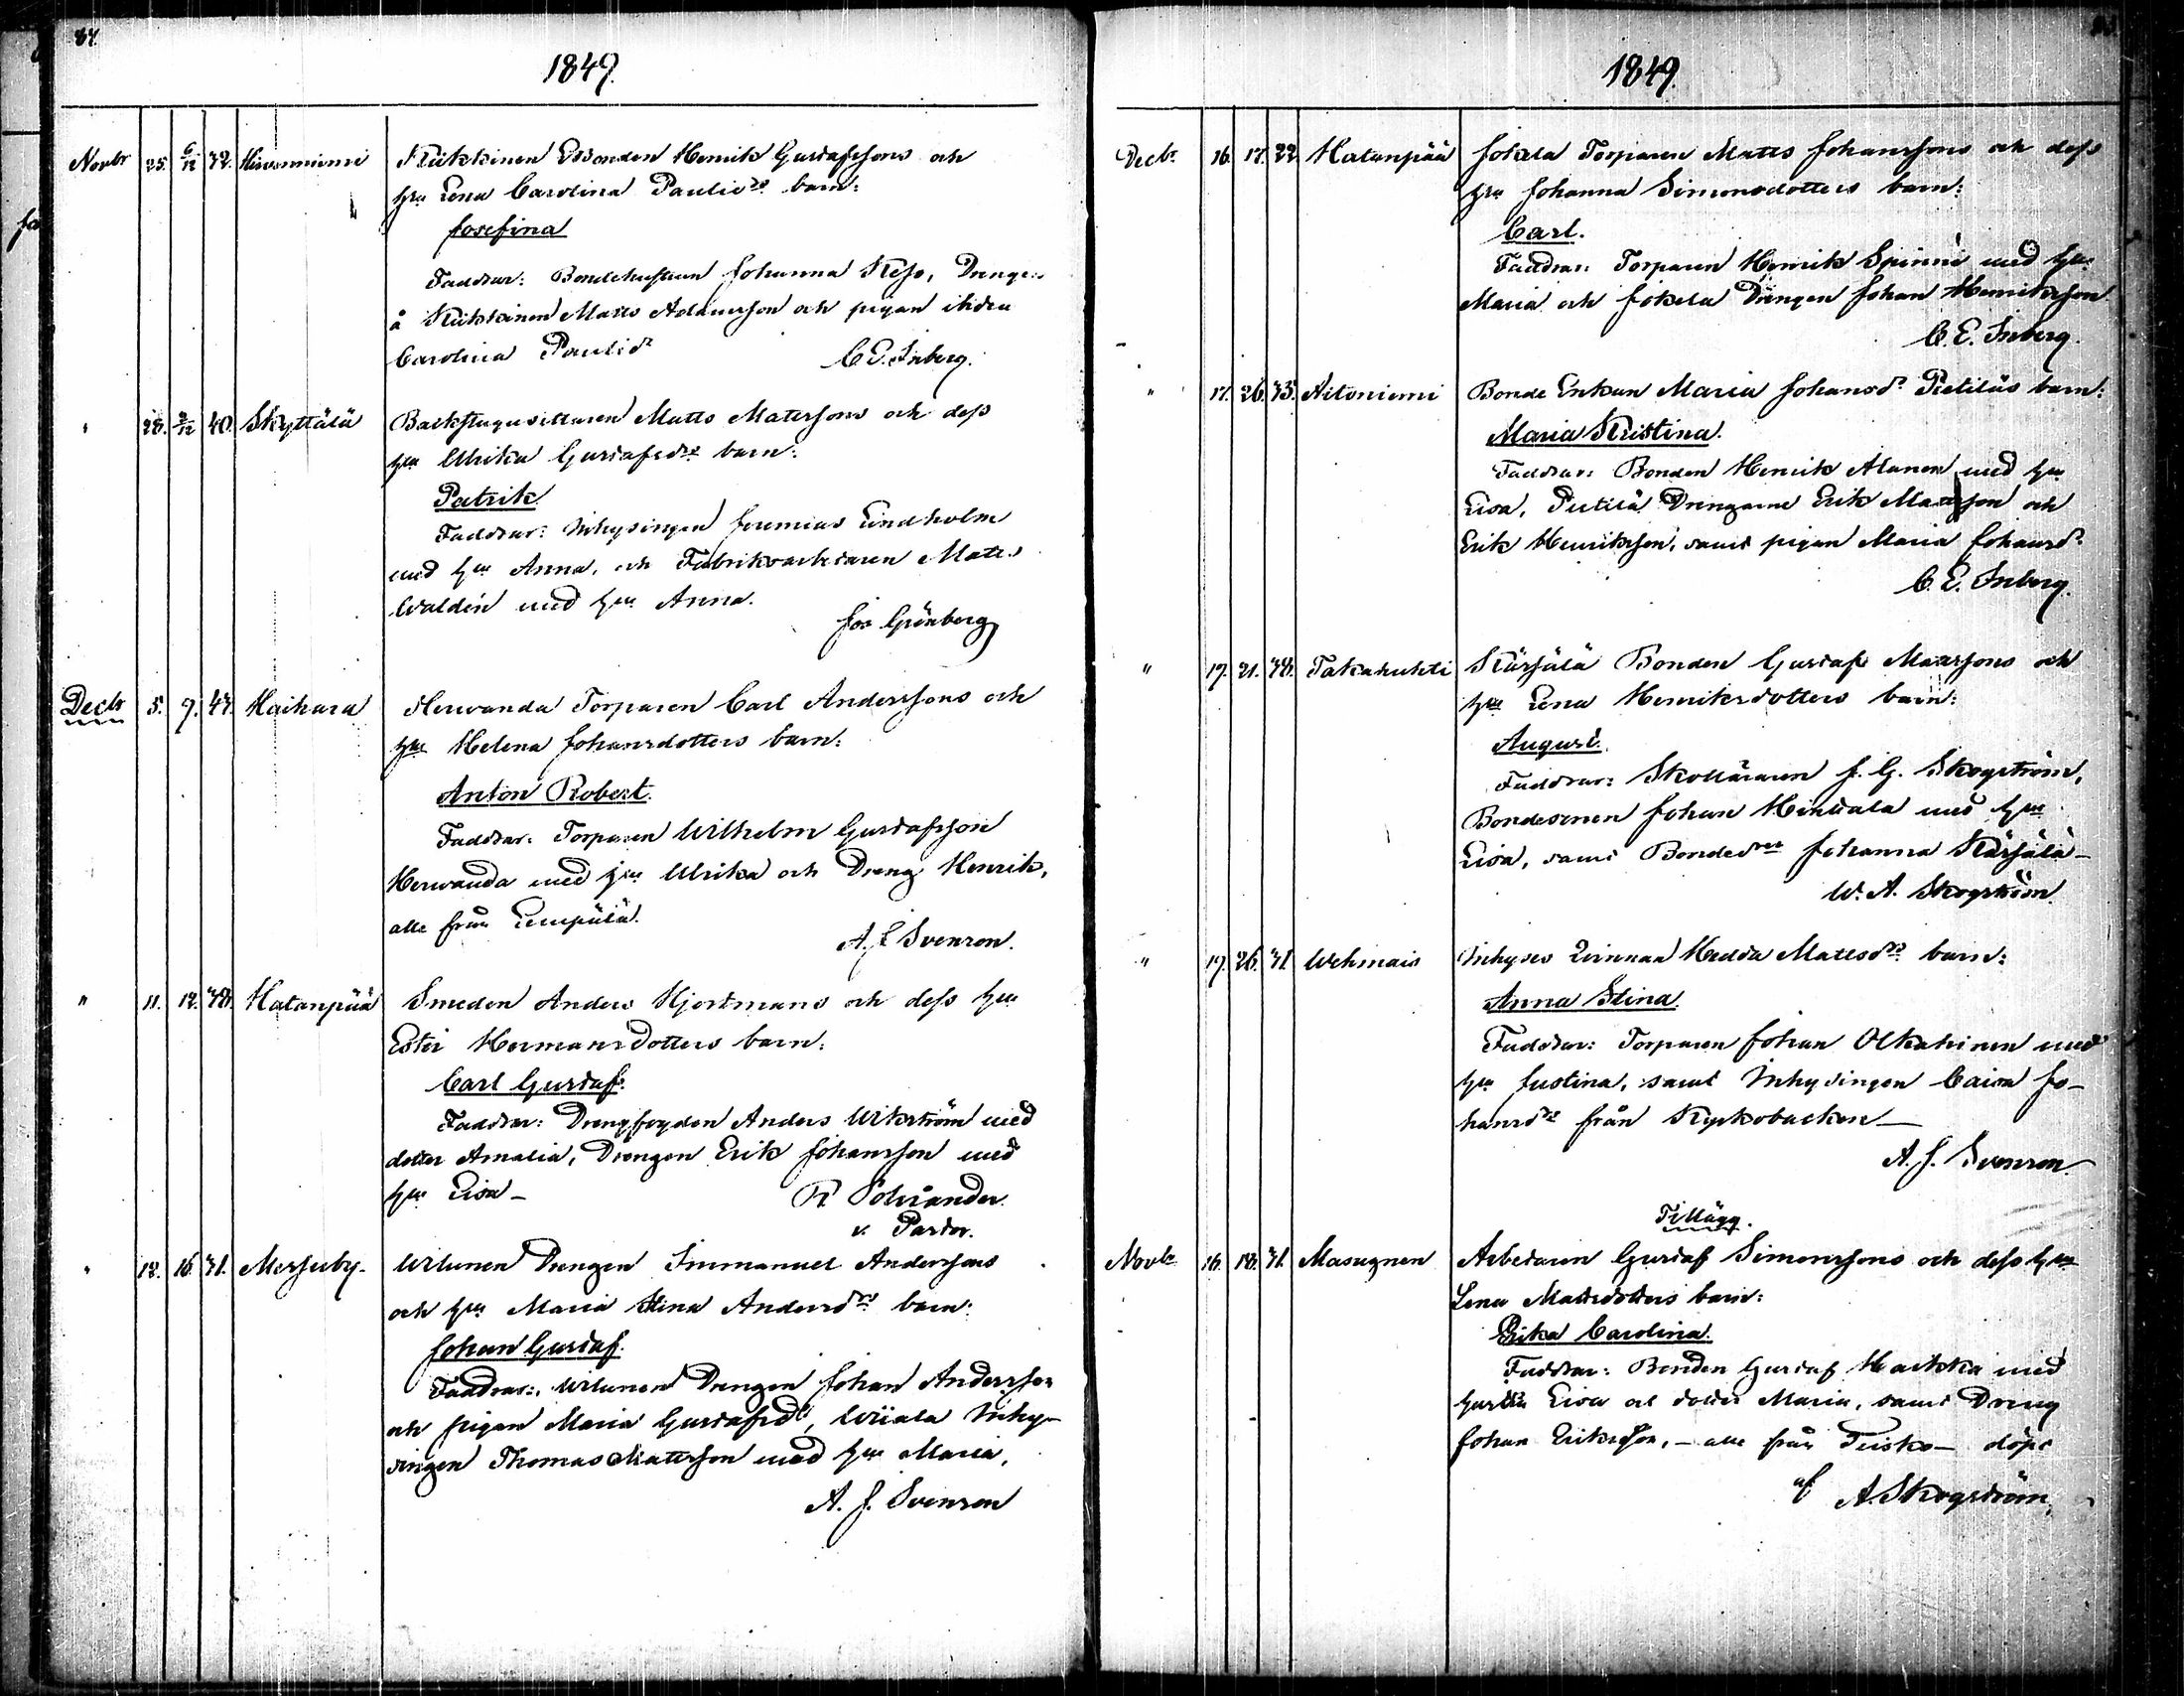 84.
1849.
Novbr 25. 6/12 32. Hirvenniemi Riikkinen Bonden Henrik Gustafssons och
hru Lena Carolina Paulidr barn:
Josefina
Faddrar: Bondehustrun Johanna Kejo, Drengen
å Riikkinen Matts Adamsson och pigan ibidem
Carolina Paulidr C. E. Inberg.
" 28. 2/12 40. Skyttälä Backstugusittaren Matts Matssons och dess
hru Ulrika Gustafsdr barn:
Patrik
Faddrar: Inhysingen Jeremias Lindholm
med hru Anna, och Fabriksarbetaren Matts
Waldén med hru Anna.
Jos Grönberg
Decbr 5. 9. 47. Haihara Herwanda Torparen Carl Anderssons och
hru Helena Johansdotters barn:
Anton Robert.
Faddrar: Torparen Wilhelm Gustafsson
Herwanda med hru Ulrika och Dreng Henrik,
alla från Lempälä.
A. J. Svenson.
" 11. 12. 38. Hatanpää Smeden Anders Hjortmans och dess hru
Ester Hermansdotters barn:
Carl Gustaf.
Faddrar: Drengfogden Anders Wikström med
dotter Amalia, Drengen Erik Johansson med
hru Lisa –
v. Pastor.
" 12. 16. 31. Messuby. Drengen Immanuel Anderssons
och hru Maria Stina Andersdr barn:
Johan Gustaf.
Faddrar: Drengen Johan Andersson
och pigan Maria Gustafsdr, Wiiala Inhy-
singen Thomas Mattsson med hru Maria.
A. J. Svenson
1849.
Decbr 16. 17. 22. Hatanpää Jokela Torparen Matts Johanssons och dess
hru Johanna Simonsdotters barn:
Carl.
Faddrar: Torparen Henrik Spinni med hru
Maria och Jokela Drengen Johan Henriksson
C. E. Inberg.
" 17. 26. 35. Aitoniemi Bonde Enkan Maria Johansdr Pietiläs barn:
Maria Kristina.
Faddrar: Bonden Henrik Alanen med hru
Lisa, Pietilä Drengarne Erik Mattsson och
Erik Henriksson, samt pigan Maria Johansdr
C. E. Inberg.
" 19. 21. 38. Takahuhti Kärjälä Bonden Gustaf Mattssons och
hru Lena Henriksdotters barn:
August.
Faddrar: Skolläraren J. G. Skogström,
Bondesonen Johan Hintsala med hru
Lisa, samt Bondedotr Johanna Kärjälä –
W. A. Skogström.
" 19. 26. 31. Wehmais Inhyses Qvinnan Hedda Mattsdrs barn:
Anna Stina.
Faddrar: Torparen Johan Olkahinen med
hru Justina, samt Inhysingen Caisa Jo-
hansdr från Kyrkobacken –
A. J. Svenson
Tillägg.
Novbr 16. 18. 31. Masugnen Arbetaren Gustaf Simonssons och dess hru
Lena Mattsdotters barn:
Erika Carolina.
Faddrar: Bonden Gustaf Haikka med
hustru Lisa och dotter Maria, samt Dreng
Johan Eriksson, – alla från Teisko – döpt
af A. Skogström.